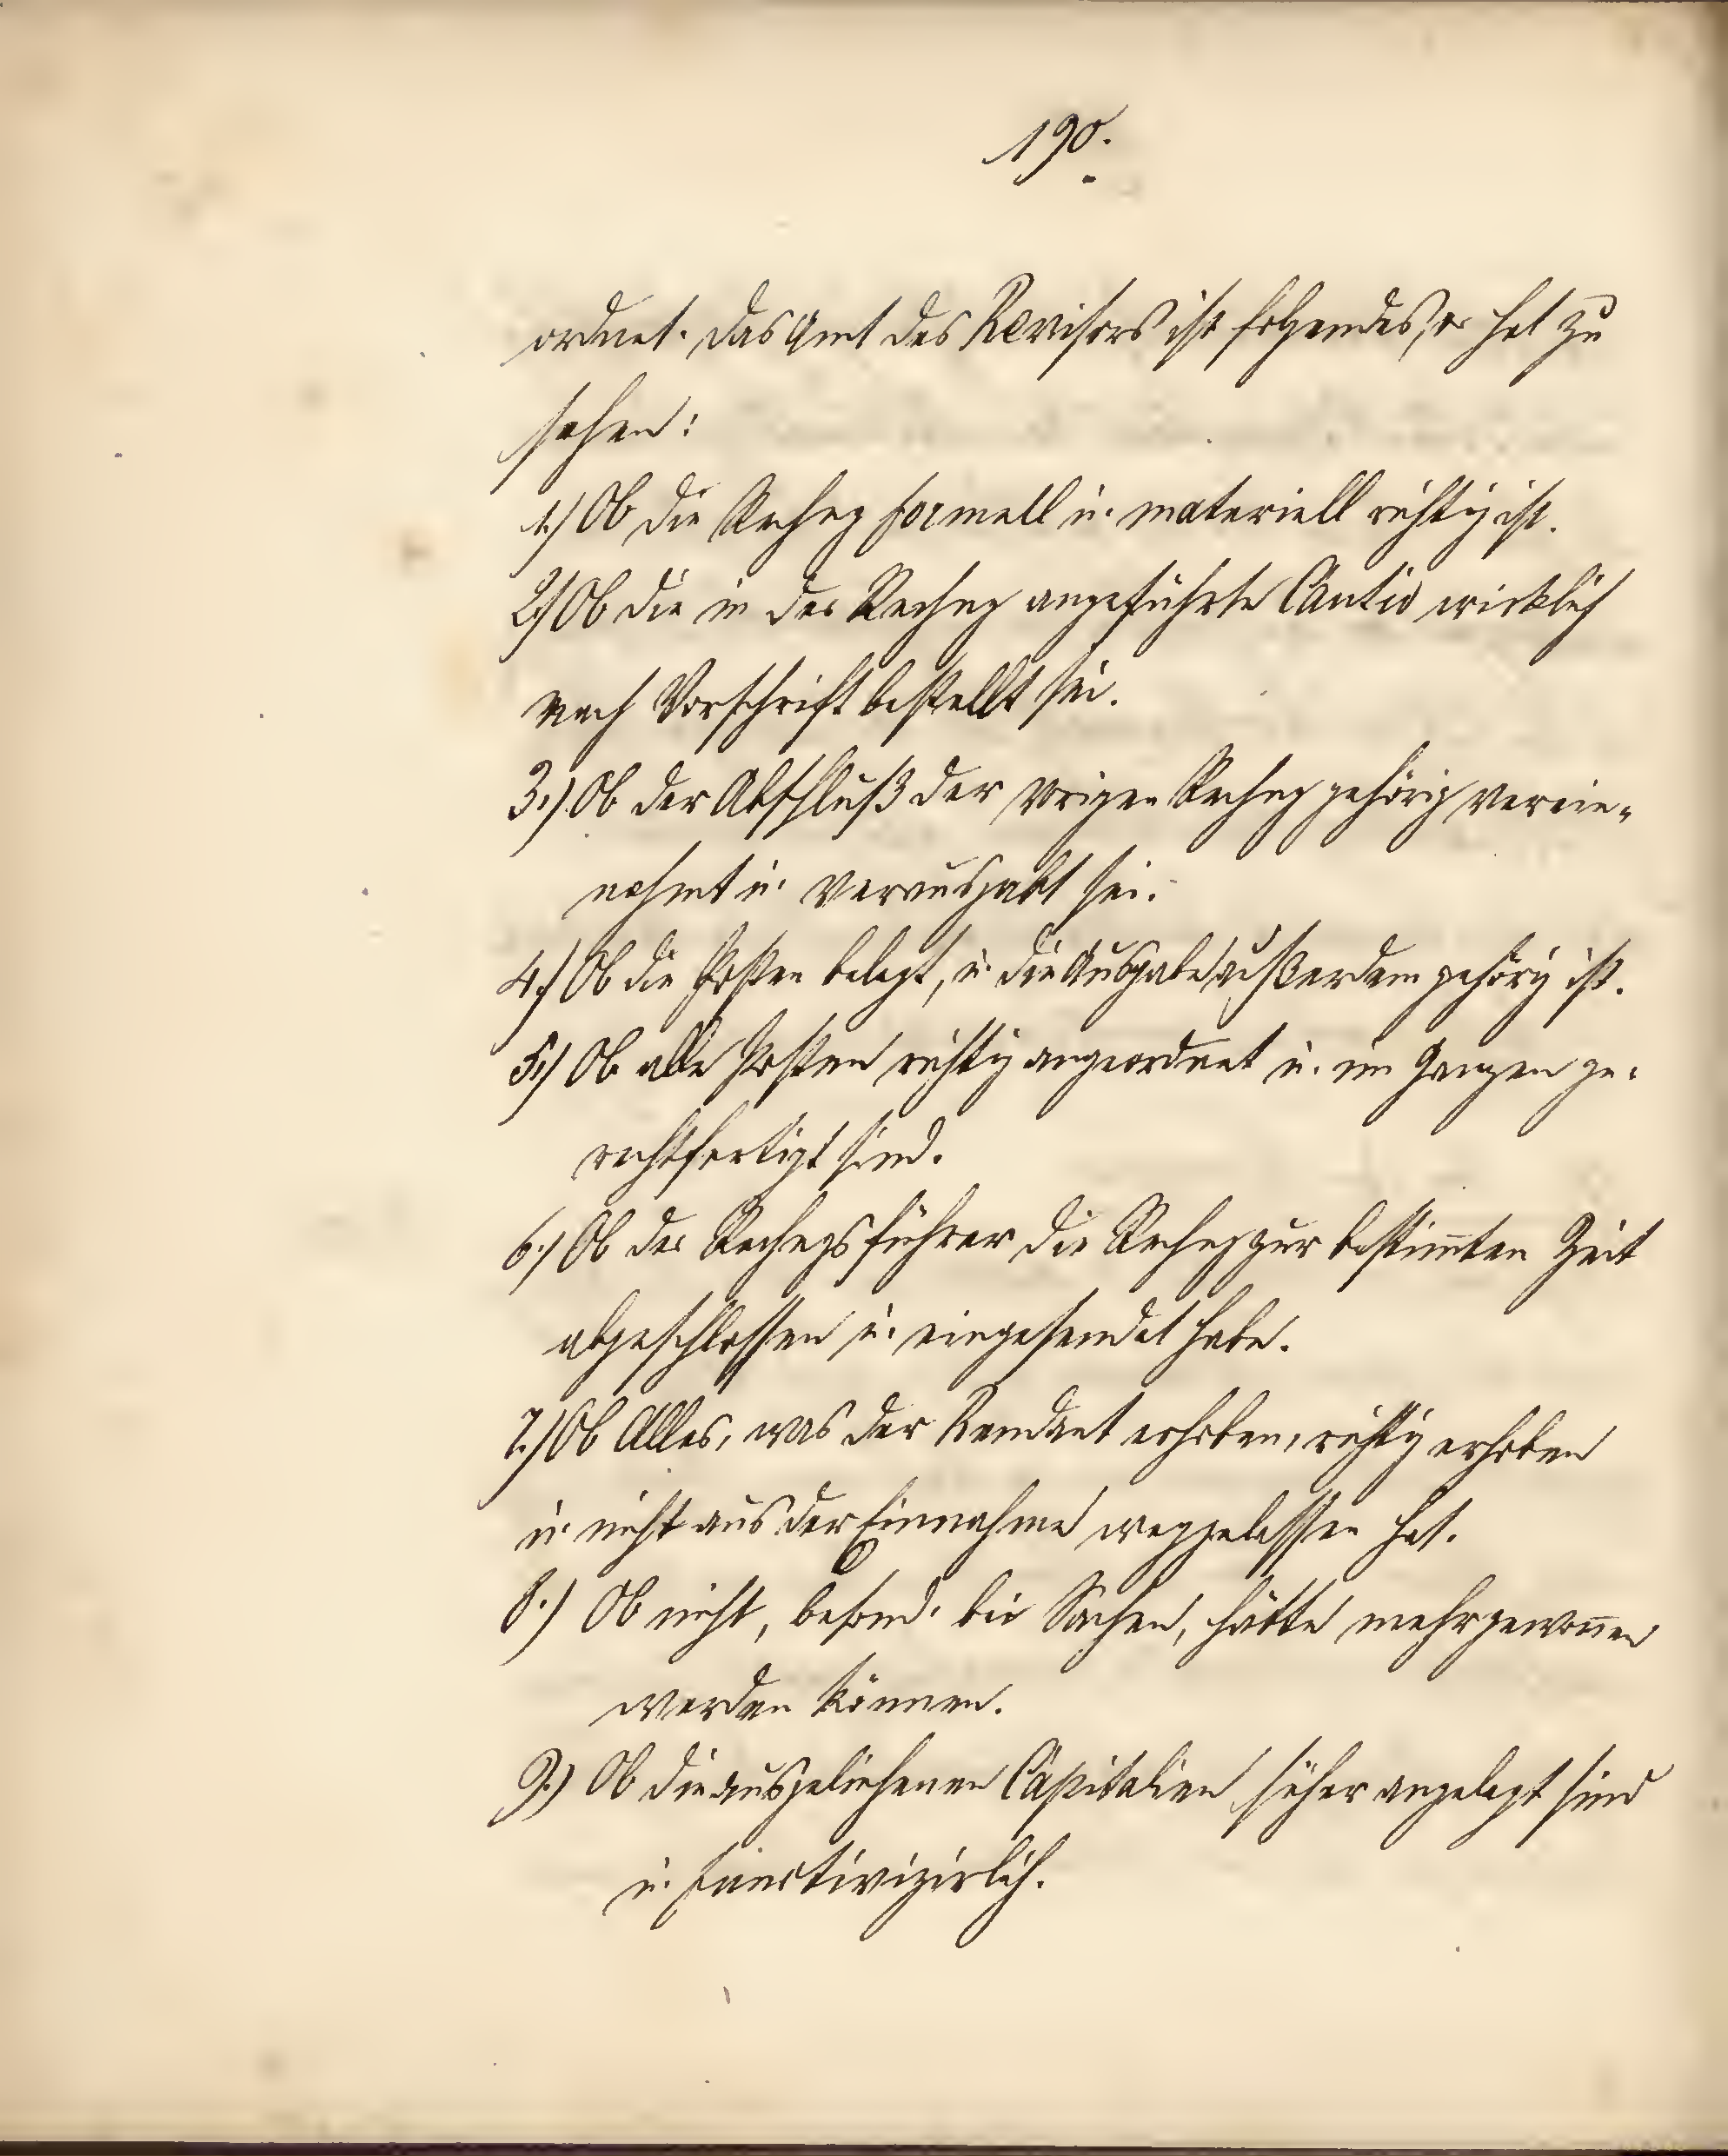 190.
ordnet. Das Amt des Revisors ist folgendes, er hat zu
sehen:
1.) Ob die Rechng formell u. materiell richtig ist.
2.) Ob die in der Rechng angeführte Cautio wirklich
nach Vorschrift bestellt sei.
3.) Ob der Abschluß der vorigen Rechng gehörig verein-
nahmt u. verausgabt sei.
4.) Ob die Posten belegt, u. die Ausgabe außerdem gehörig ist.
5.) Ob alle Posten richtig angeordnet u. im Ganzen ge-
rechtfertigt sind.
6.) Ob der Rechngsführer die Rechng zur bestim̄ten Zeit
abgeschlossen u. eingesendet habe.
7.) Ob Alles, was der Rendant erhoben, richtig erhoben
u. nicht aus der Einnahme weggelassen hat.
8.) Ob nicht, besond. bei Sachen, hätte mehr gewon̄en
werden können.
9.) Ob die ausgeliehenen Capitalien sicher angelegt sind
u.